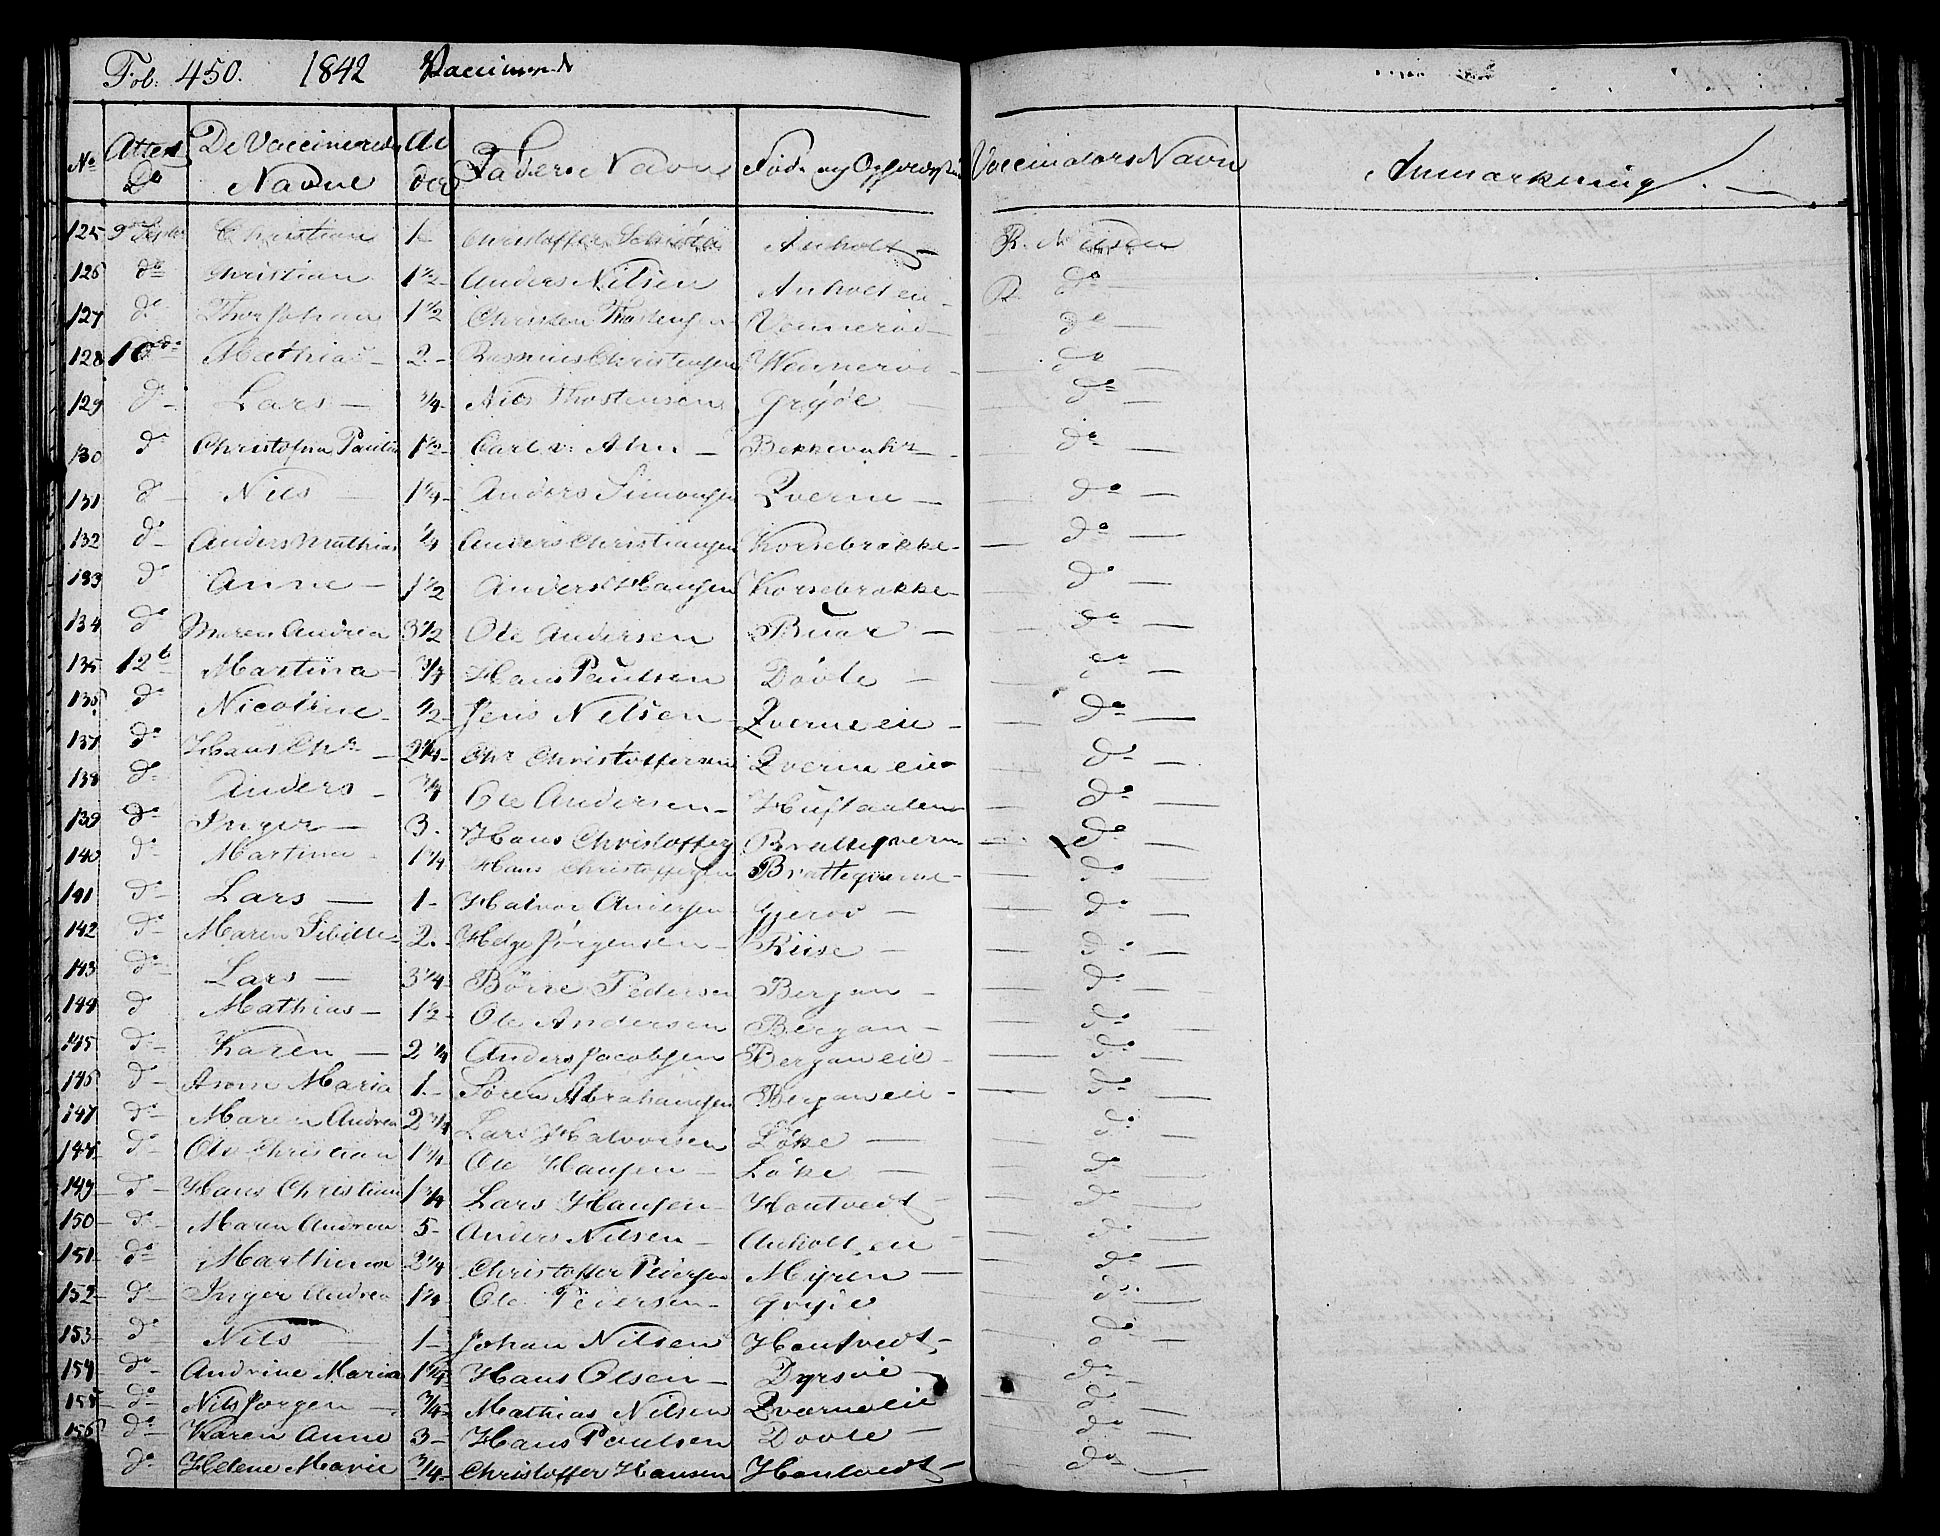 Fol: 450. 1842 Vaccinerede
No Attest Do De Vaccineredes Navne Alder Faders Navn Føde og Opholdssted Vaccinators Navn Anmærkning
125 9de Christian 1 Christoffer Anholt R. Nilsen
126 do Christian 1 1/2 Anders Nilsen Anholt eie R. do
127 do Thor Johan 1 1/2 Christen Thostensen Vennerød do
128 10de do Mathias 2 Rasmus Christensen Wennerød do
129 do Lars 3/4 Nils Thostensen Gryde do
130 do Christofina Pauline 1 1/2 Carl v. Ahn Bekkevahr do
131 do Nils 1 1/4 Anders Simonsen Qverne do
132 do Anders Mathias 1/4 Anders Christiansen Korsebrække do
133 do Anne 1 1/2 Anders Hansen Korsebrække do
134 do Maren Andrea 3 1/2 Ole Andersen Buar do
135 12te Martina 3/4 Hans Paulsen Dovle do
136 do Nicoline 1/2 Jens Nilsen Qverne eie do
137 do Hans Chr 2 1/4 Chr Christoffersen Qverne eie do
138 do Anders 3/4 Ole Andersen do
139 do Inger 3 Hans Christoffers Bratteqvern do
140 do Martine 1 1/4 Hans Christoffersen Bratteqverne do
141 do Lars 1 Halvor Andersen Gjerov do
142 do Maren Sibille 2 Helge Jørgensen Riise do
143 do Lars 3 1/4 Börre Pedersen Bergan do
144 do Mathias 1 1/2 Ole Andersen Bergan do
145 do Karen 2 1/4 Anders Jacobsen Bergan eie do
146 do Maria 1 Søren Abrahamsen Bergan eie do
147 do Maren Andrea 2 3/4 Lars Halvorsen Løke do
148 do Ole Christian 1 1/4 Ole Hansen Løke do
149 do Hans Christian 1 3/4 Lars Hansen Hontvedt do
150 do Maren Andrea 5 Anders Nilsen Anholt en do
151 do Marthinea 2 1/4 Christoffer Pedersen Myren do
152 do Inger Andrea 1 1/4 Ole Pedersen Gryde do
153 do Nils 1 Johan Nilsen Hontvedt do
154 do Andrine Maria 1 1/4 Hans Olsen Dyrsøe do
155 do Nils Jørgen 3/4 Mathias Nilsen Qverne eie do
156 do Karen Anne 3 Hans Poulsen Dovle do
do Helene Marie 3/4 Christoffer Hansen Hontvedt do